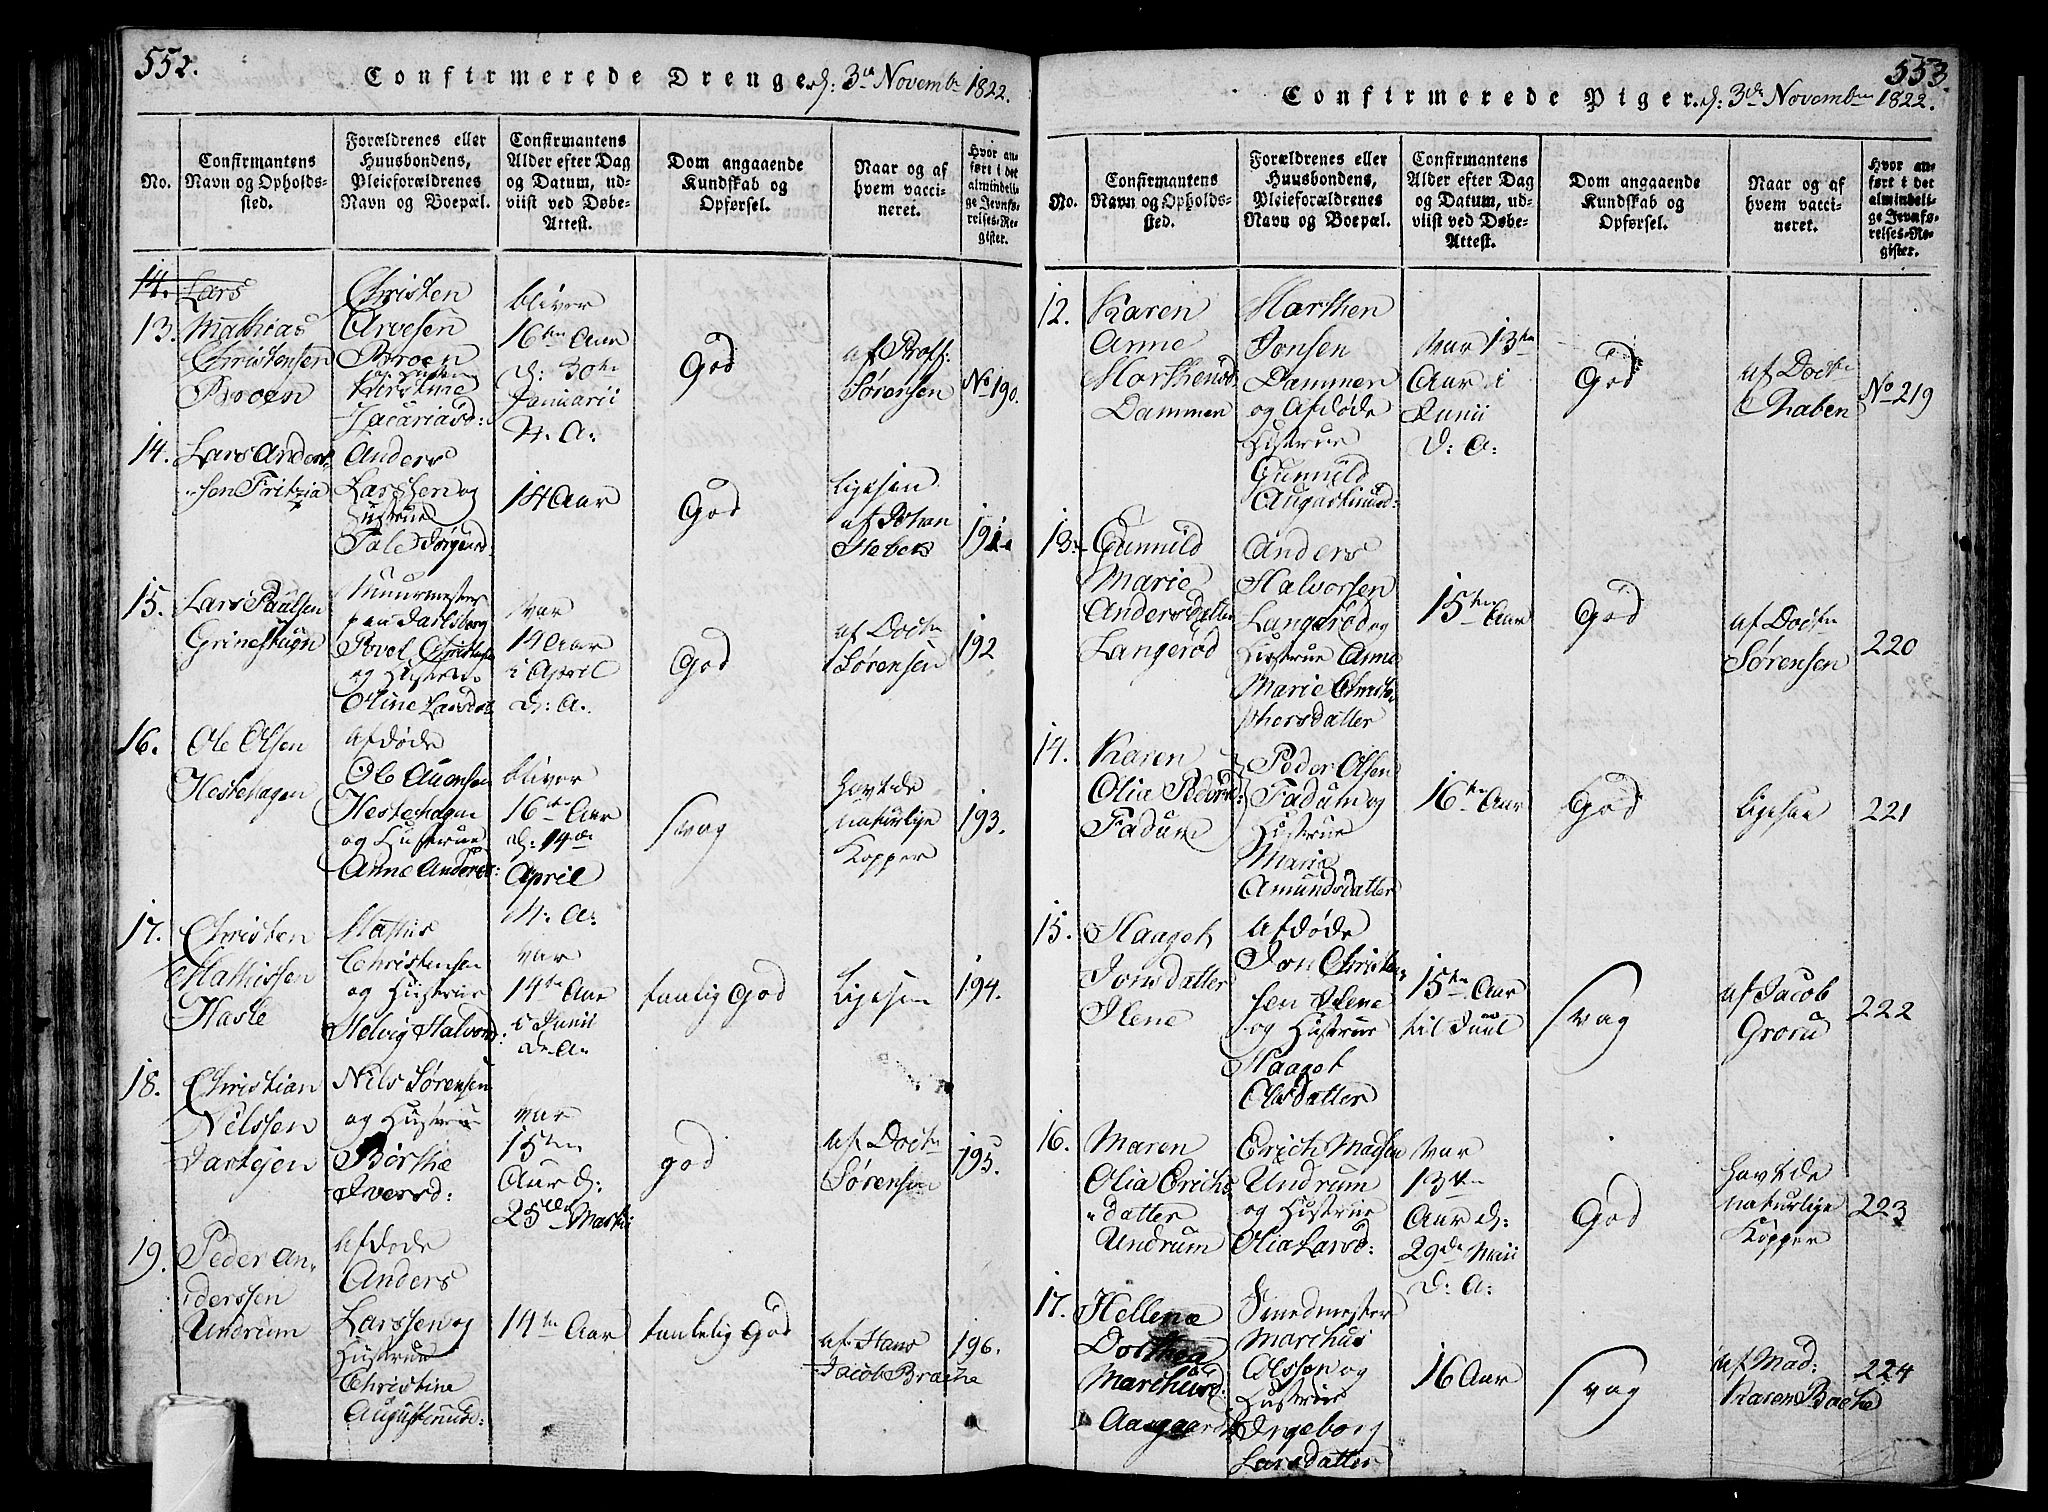 552.
Confirmerede Drenge. d: 3die Novembr 1822.
No.
Confirmantens
Navn og Opholds-
sted.
Forældrenes eller
Huusbondens,
Pleieforældrenes
Navn og Boepæl.
Confirmantens
Alder efter Dag
og Datum, ud-
viist ved Døbe-
Attest.
Dom angaaende
Kundskab og
Opførsel.
Naar og af
hvem vacci-
neret.
Hvor an-
ført i det
almindeli-
ge Jevnfø-
relses-Re-
gister.
14. Lars
13. Mathias
Christensen
Broen
Christen
Arvesen
Broen
og Hustrue
Kirstine
Zacariasd:
bliver
16ten Aar
d: 30te
Januarii
N. A:
God
af Proff:
Sørensen
No 190.
14. Lars Anders
sen Fritzia
Anders
Larssen og
Hustrue
Tale Jørgensd
14 Aar
God
ligesen
af Johan
191.
15. Lars Paulsen
Grinestuen
Muurmester
paa Jarlsberg
Povel Christens
og Hustrue
Oline Larsdat
var
14 Aar
i April
d: A.
God
af Doctr
Sørensen
192
16. Ole Olsen
Hestehagen
Afdøde
Ole Auensen
Hestehagen
og Hustrue
Anne Andersd:
bliver
16ten Aar
d: 14de
April
N: A:
svag
havt de
naturlige
Kopper
193.
17. Christen
Mathissen
Hasle
Mathis
Christensen
og Hustrue
Helvig Halvorsd:
var
14ten Aar
i Junii
d: A:
taalig God
Ligesen
194.
18. Christian
Nilssen
Jarlsen
Nils Sørensen
og Hustrue
Børthe
Iversd:
var
15ten
Aar d:
25de Martii
god
af Doctr
Sørensen
195.
19. Peder An-
derssen
Undrum
Afdøde
Anders
Larssen og
Hustrue
Christine
Augustinusd:
14ten Aar
taalelig God
af Hans
Jacob Brache
196.
553.
Confirmerede Piger. d: 3de Novembr 1822.
No.
Confirmantens
Navn og Opholds-
sted.
Forældrenes eller
Huusbondens,
Pleieforældrenes
Navn og Boepæl.
Confirmantens
Alder efter Dag
og Datum, ud-
viist ved Døbe-
Attest.
Dom angaaende
Kundskab og
Opførsel.
Naar og af
hvem vacci-
neret.
Hvor an-
ført i det
almindeli-
ge Jevnfø-
relses-Re-
gister.
12. Karen
Anne
Marthensd.
Dammen
Marthen
Jonsen
Dammen
og Afdøde
Hustrue
Gunnild
Augustinusd:
var 13ten
Aar i
Junii
d: A:
God
af Doctr
Chaben
No 219
13. Gunnild
Marie
Andersdatter
Langerød
Anders
Halvorsen
Langerød og
Hustrue Anne
Marie Christo-
phersdatter
15ten Aar
God
af Doctr
Sørensen
220
14. Karen
Olia Pedersd:
Fadum
Peder Olsen
Fadum og
Hustrue
Marie
Amundsdatter
16ten Aar
God
ligesaa
221
15. Haaget
Jonsdatter
Ilene
Afdøde
Jon Christen-
sen Ilene
og Hustrue
Haaget
Olsdatter
15ten Aar
til Juul
svag
af Jacob
Grorud
222
16. Maren
Olia Erichs
datter
Undrum
Erich Madsen
Undrum
og Hustrue
Olia Larsd:
var
13ten
Aar d:
29de Maii
d: A:
God
havt de
naturlige
Kopper
223
17. Hellena
Dorthea
Marchusd:
Aaagaard
Smedmester
Marchus
Olssen og
Hustrue
Ingeborg
Larsdatter
16 Aar
svag
af Mad:
Karen Bache
224